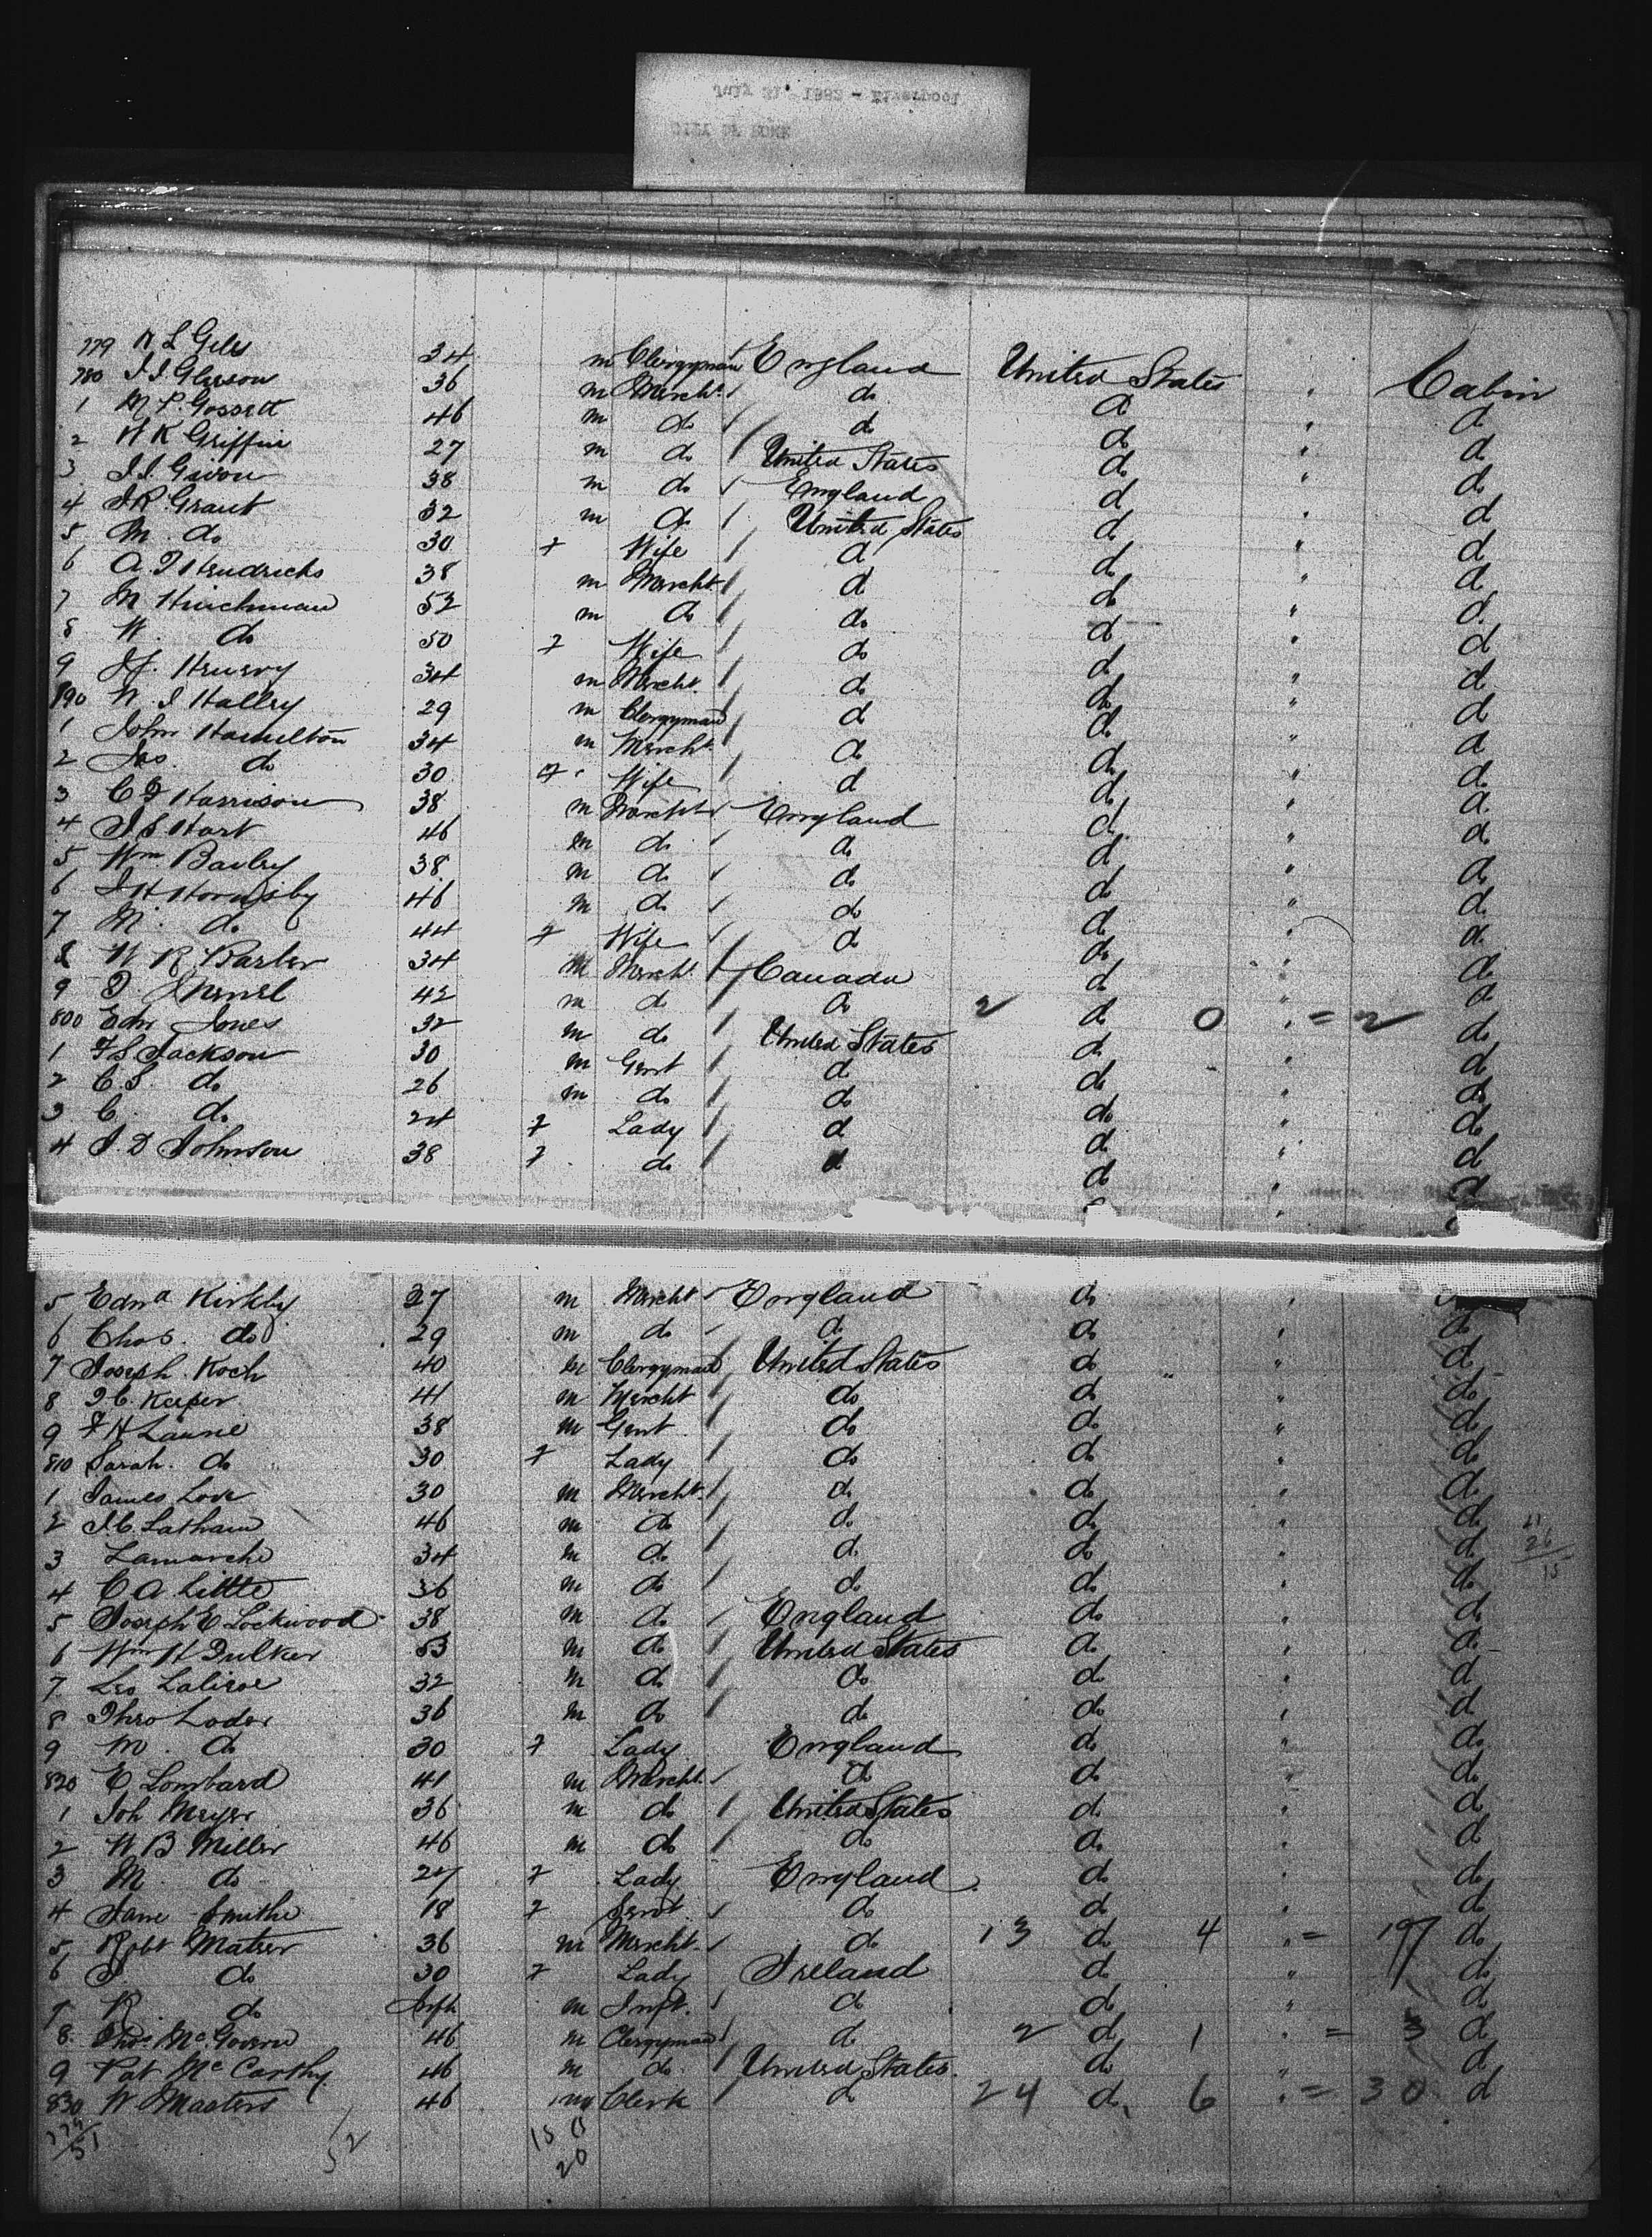 779 N L Giles 34 m Clergyman England United States " Cabin
780 J J Gleeson 36 m Mercht do do " do
1 M P. Gossett 46 m do do do " do
2 H K Griffin 27 m do United States do " do
3 J J. Givon 38 m do England do " do
4 J R. Grant 32 m do United States do " do
5 M. do 30 f Wife do do " do
6 A. T Hendricks 38 m Mercht do do " do
7 M Hinchman 52 m do do do " do
8 W. do 50 f Wife do do " do
9 Henry 34 m Mercht. do do " do
790 W. J Halley 29 m Clergyman do do " do
1 John Hamilton 34 m Mercht do do " do
2 Jas. do 30 f Wife do do " do
3 C F Harrison 38 m Mercht England do " do
4 J S Hart 46 m do do do " do
5 Wm. Bailey 38 m do do do " do
6 J H. Hornsby 46 m do do do " do
7 M. do 44 f Wife do do " do
8 W R. Barber 34 m Mercht Canada do " do
9 42 m do do 2 do 0 " = 2 do
800 Edw Jones 32 m do United States do " do
1 F S Jackson 30 m Gent do do " do
2 C. S. do 26 m do do do " do
3 C. do. 24 f Lady do do " do
4 J. D Johnson 38 f do do do " do
5 Edwd Kirkby 27 m Mercht England do " do
6 Chas. do 29 m do do do " do
7 Joseph Koch 40 m Clergyman United States do " do
8 J C. Keefer 41 m Mercht do do " do
9 F H Laurie 38 m Gent do do " do
810 Sarah. do 30 f Lady do do " do
1 James Love 30 m Mercht. do do " do
2 J. C. Latham 46 m do do do " do
3 Lamarche 34 m do do do " do
4 C A. Little 36 m do do do " do
5 Joseph E Lockwood 38 m do England do " do
6 Wm H Dulker 53 m do United States do " do
7 Leo Lalisse 32 m do do do " do
8 Theo Loder 36 m do do do " do
9 M. do 30 f Lady England do " do
820 E Lombard 41 m Mercht. do do " do
1 Joh Meyer 36 m do United States do " do
2 W B Miller 46 m do do do " do
3 M. do 27 f Lady England do " do
4 Jane Smithe 18 f Servt. do do " do
5 Robt Matser 36 m Mercht. do 13 do 4 " = 17 do
6 do 30 f Lady Ireland do " do
7 R. do Infts m Inft. do do " do
8 Thos. Mc Govern 46 m Clergyman do 2 do 1 " = 3 do
9 Pat Mc Carthy 46 m do United States do " do
830 W Masters 46 m Clerk do 24 do 6 " = 30 do
52
20